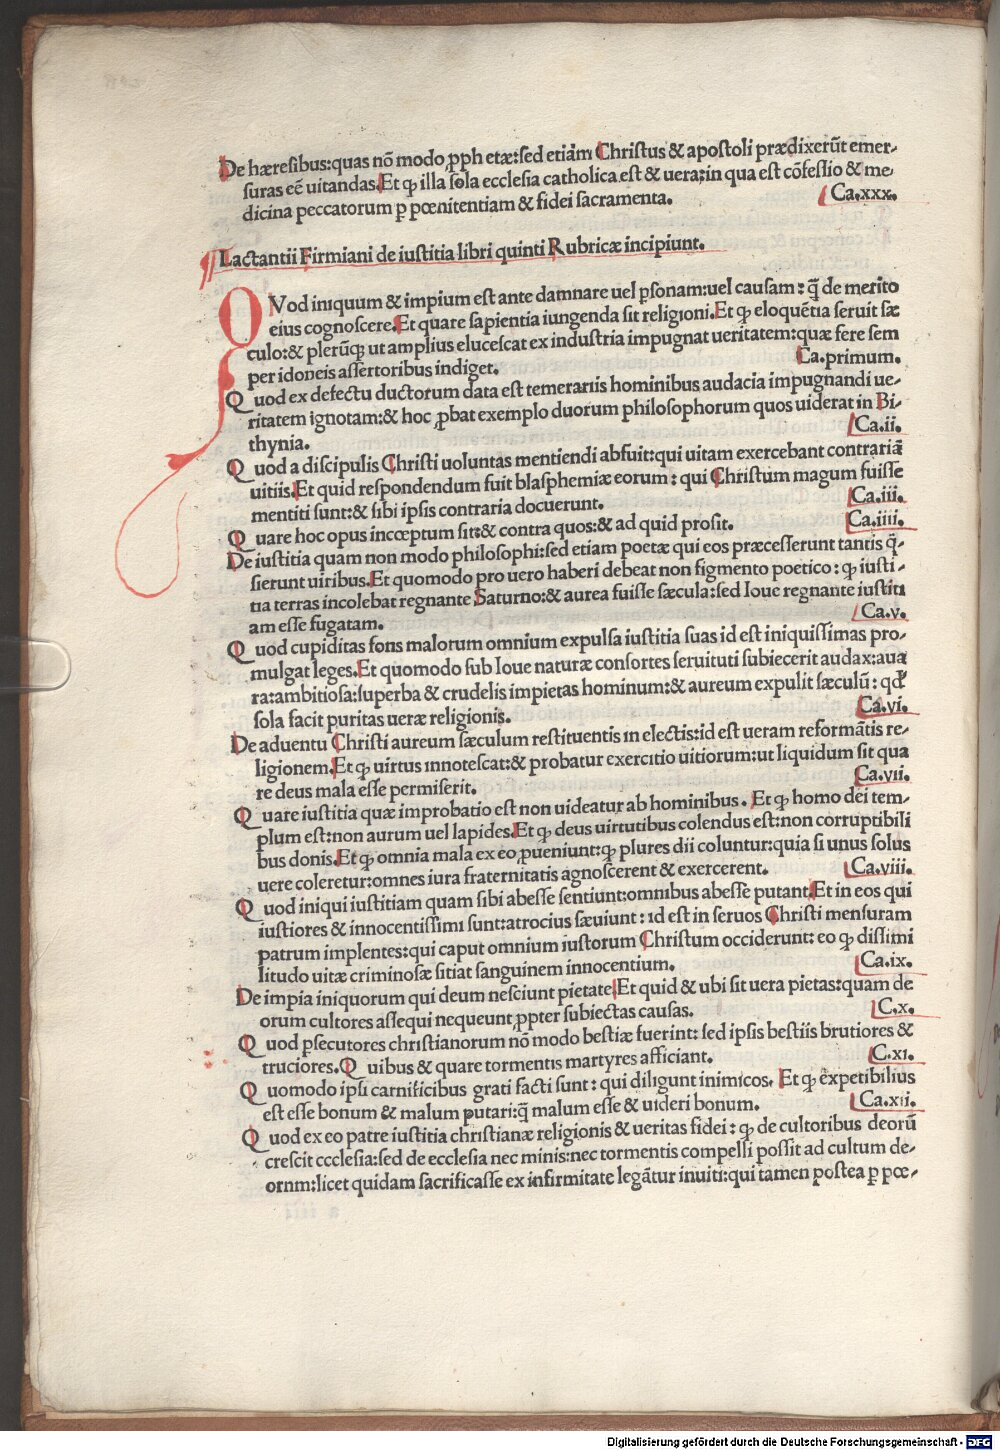 De hæresibus:quas nō modo ꝓph etæ:sed etiā̄m Christus & apostoli prædixerūt emer-
suras eē uitandas.Et ꝙ illa sola ecclesia catholica est & uera:in qua est cōfessio & me-
dicina peccatorum p̱ pœnitentiam & fidei sacramenta. Ca.xxx.
Lactantii Firmiani de iustitia libri quinti Rubricæ incipiunt.
QVod iniquum & impium est ante damnare uel p̱sonam:uel causam: q̄ de merito
eius cognoscere.Et quare sapientia iungenda sit religioni.Et ꝙ eloquētia seruit sæ
culo:& plerūq; ut amplius elucescat ex industria impugnat ueritatem:quæ fere sem
per idoneis assertoribus indiget. Ca.primum.
Quod ex defectu ductorum data est temerariis hominibus audacia impugnandi ue-
ritatem ignotam:& hoc ꝓbat exemplo duorum philosophorum quos uiderat in Bi-
thynia. Ca.ii.
Quod a discipulis Christi uoluntas mentiendi abfuit:qui uitam exercebant contrariā
uitiis.Et quid respondendum fuit blasphemiæ eorum: qui Christum magum fuisse
mentiti sunt:& sibi ipsis contraria docuerunt. Ca.iii.
Quare hoc opus incœptum sit:& contra quos:& ad quid prosit. Ca.iiii.
De iustitia quam non modo philosophi:sed etiam poetæ qui eos præcesserunt tantis q̄-
sierunt uiribus.Et quomodo pro uero haberi debeat non figmento poetico: ꝙ iusti-
tia terras incolebat regnante Saturno:& aurea fuisse sæcula:sed Ioue regnante iustiti
am esse fugatam. Ca.v.
Quod cupiditas fons malorum omnium expulsa iustitia suas id est iniquissimas pro-
mulgat leges.Et quomodo sub Ioue naturæ consortes seruituti subiecerit audax:aua
ra:ambitiosa:superba & crudelis impietas hominum:& aureum expulit sæculū: qđ
sola facit puritas ueræ religionis. Ca.vi.
De aduentu Christi aureum sæculum restituentis in electis:id est ueram reformātis re-
ligionem.Et ꝙ uirtus innotescat:& probatur exercitio uitiorum:ut liquidum sit qua
re deus mala esse permiserit. Ca.vii.
Quare iustitia quæ improbatio est non uideatur ab hominibus. Et ꝙ homo dei tem-
plum est:non aurum uel lapides.Et ꝙ deus uirtutibus colendus est:non corruptibili
bus donis.Et ꝙ omnia mala ex eo ꝓueniunt:ꝙ plures dii coluntur:quia si unus solus
uere coleretur:omnes iura fraternitatis agnoscerent & exercerent. Ca.viii.
Quod iniqui iustitiam quam sibi abesse sentiunt:omnibus abesse putant.Et in eos qui
iustiores & innocentissimi sunt:atrocius sæuiunt: id est in seruos Christi mensuram
patrum implentes:qui caput omnium iustorum Christum occiderunt: eo ꝙ dissimi
litudo uitæ criminosæ sitiat sanguinem innocentium. Ca.ix.
De impia iniquorum qui deum nesciunt pietate.Et quid & ubi sit uera pietas:quam de
orum cultores assequi nequeunt ꝓpter subiectas causas. C.x.
Quod p̱secutores christianorum nō modo bestiæ fuerint: sed ipsis bestiis brutiores &
truciores.Quibus & quare tormentis martyres afficiant. C.xi.
Quomodo ipsi carnificibus grati facti sunt: qui diligunt inimicos. Et ꝙ expetibilius
est esse bonum & malum putari:q̄ malum esse & uideri bonum. Ca.xii.
Quod ex eo patre iustitia christianæ religionis & ueritas fidei: ꝙ de cultoribus deorū
crescit ccclesia:sed de ecclesia nec minis:nec tormentis compelli possit ad cultum de-
ornm:licet quidam sacrificasse ex infirmitate legātur inuiti:qui tamen postea p̱ pœ-
Digitalisierung gefördert durch die Deutsche Forschungsgemeinschaft - DFG